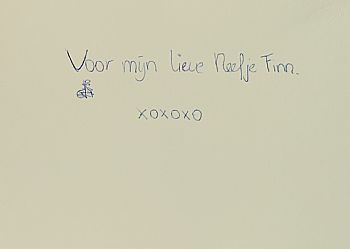 Voor mijn lieve Neefje Finn.
xoxoxo